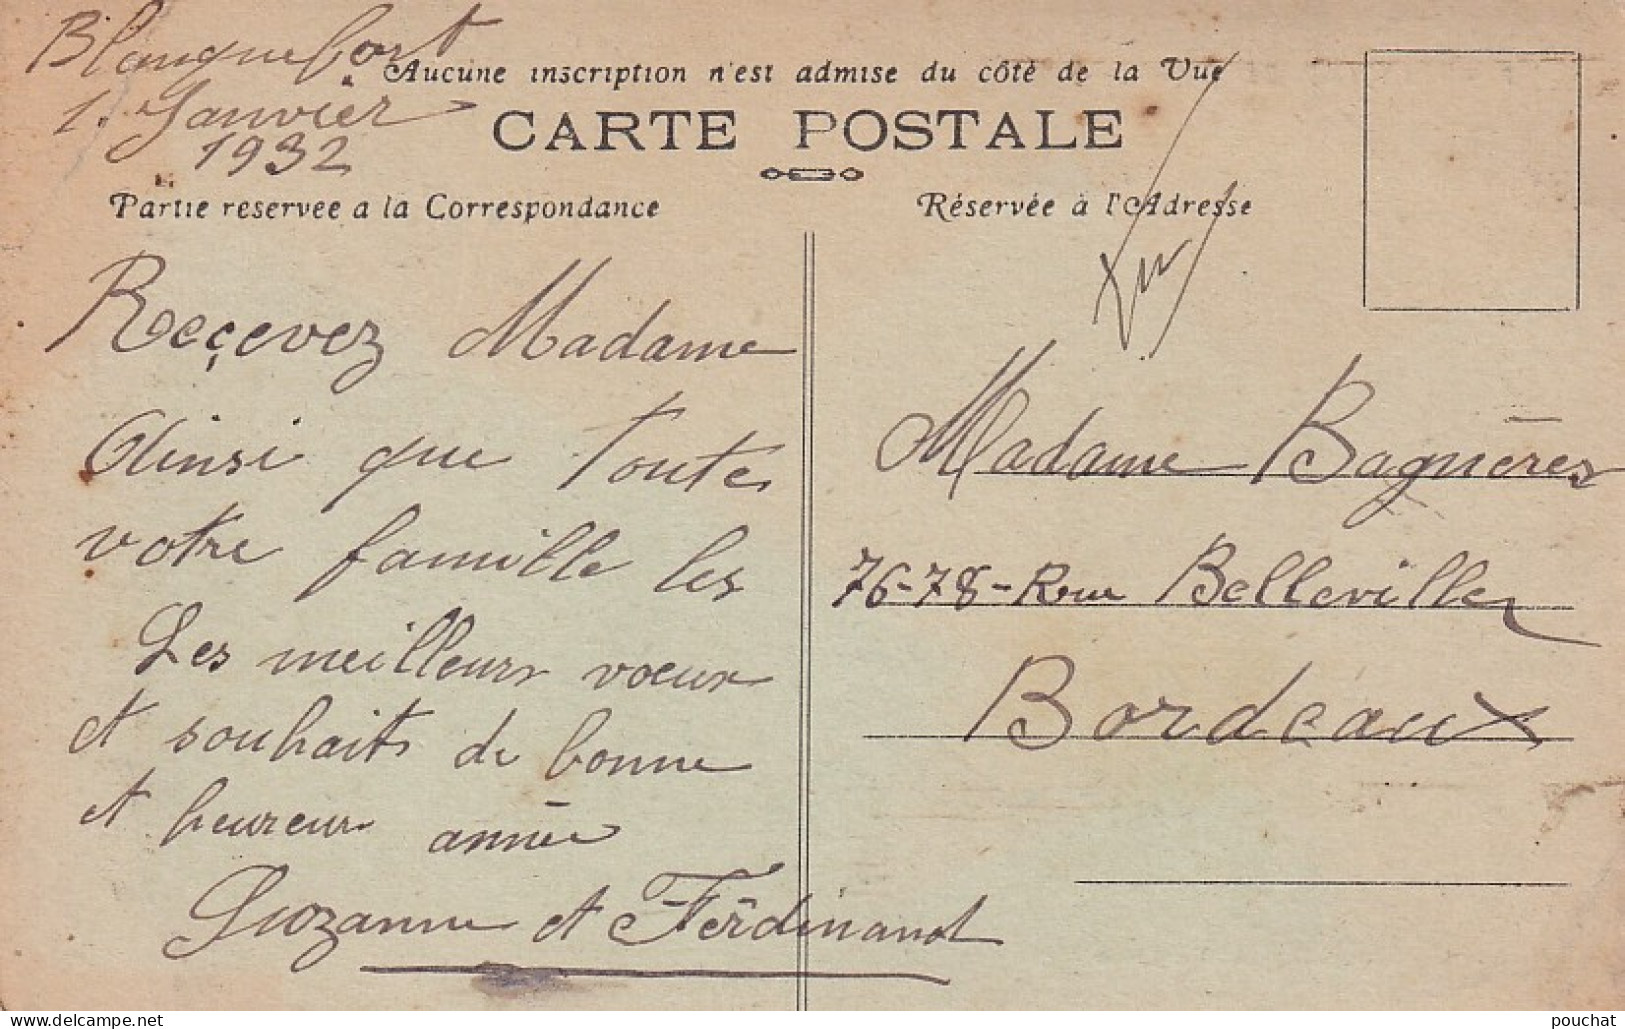 Blanquefort
1. Janvier
1932
Aucune inscription n'est admise du côté de la Vue
CARTE POSTALE
Partie reservee a la Correspondance
Réservée à l'Adresse
Reçevez Madame
Ainsi que toute
votre famille les
Les meilleurs voeux
et souhaits de bonne
et heureux année
Suzanne et Ferdinand
Madame Bagnères
76-78-Rue Belleville
Bordeaux
www.delcampe.net
pouchat